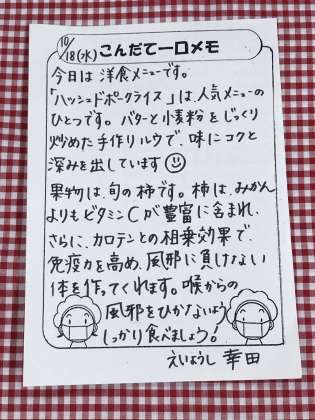 10/18(水) こんだて一口メモ
今日は洋食メニューです。
「ハッシュドポークライス」は、人気メニューの
ひとつです。バターと小麦粉をじっくり
炒めた手作りルウで、味にコクと
深みを出しています
果物は、旬の柿です。柿は、みかん
よりもビタミンCが豊富に含まれ、
さらに、カロテンとの相乗効果で、
免疫力を高め、風邪に負けない
体を作ってくれます。喉からの
風邪をひかないよう
しっかり食べましょう!
えいようし 幸田